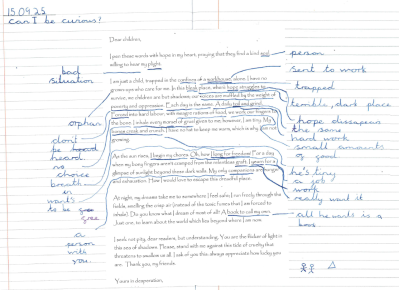 15.09.25
can I be curious?
Dear children,
I pen these words with hope in my heart, praying that they find a kind soul
willing to hear my plight.
I am just a child, trapped in the confines of a workhouse, alone. I have no
grown-ups who care for me. In this bleak place, where hope struggles to
survive, we children are but shadows, our voices are muffled by the weight of
poverty and oppression. Each day is the same. A daily toil and grind.
I am forced into hard labour, with meagre rations of food, we work our fingers to
the bone. I inhale every morsel of gruel given to me; however, I am tiny. My
bones creak and crunch. I have no fat to keep me warm, which is why I am not
growing.
As the sun rises, I begin my chores. Oh, how I long for freedom! For a day
when my bony fingers aren't cramped from the relentless graft. I yearn for a
glimpse of sunlight beyond these dark walls. My only companions are hunger
and exhaustion. How I would love to escape this dreadful place.
At night, my dreams take me to somewhere I feel safe. I run freely through the
fields, smelling the crisp air (instead of the toxic fumes that I am forced to
inhale). Do you know what I dream of most of all? A book to call my own.
Just one, to learn about the world which lies beyond where I am now.
I seek not pity, dear readers, but understanding. You are the flicker of light in
this sea of shadows. Please, stand with me against this tide of cruelty that
threatens to swallow us all. I ask of you this: always appreciate how lucky you
are. Thank you, my friends.
Yours in desperation,
bad
situation
orphan
don't
be heard
heard
no
choice
breath
in
wants
to be
free
a
person
with
you.
person
sent to work
trapped
terrible, dark place
hope dissapears
the same
hard work
small amounts
of food
he's tiny
a job
work
really want it
all he wants is a
book